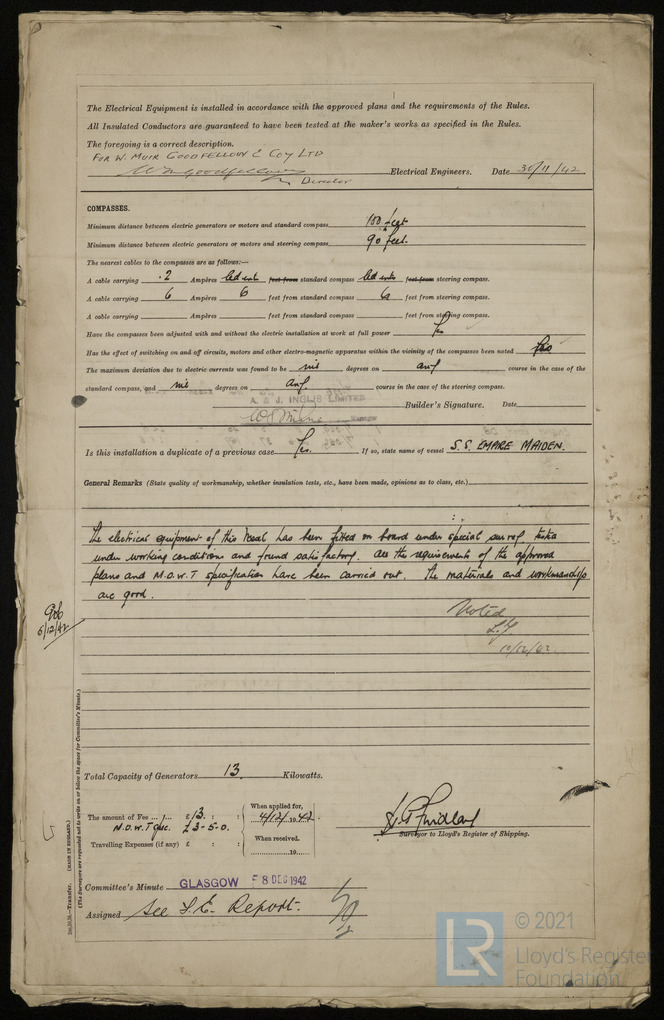 The Electrical Equipment is installed in accordance with the approved plans and the requirements of the Rules.
All Insulated Conductors are guaranteed to have been tested at the maker's works as specified in the Rules.
The foregoing is a correct description.
FOR W. MUIR GOODFELLOW & COY LTD
Wm Goodfellow Electrical Engineers. Date 30/11/42
Director
COMPASSES.
Minimum distance between electric generators or motors and standard compass 100 feet
Minimum distance between electric generators or motors and steering compass 90 feet.
The nearest cables to the compasses are as follows:—
A cable carrying .2 Ampères led into feet from standard compass led into feet from steering compass.
A cable carrying 6 Ampères 6 feet from standard compass 6 feet from steering compass.
A cable carrying Ampères feet from standard compass feet from steering compass.
Have the compasses been adjusted with and without the electric installation at work at full power Yes
Has the effect of switching on and off circuits, motors and other electro-magnetic apparatus within the vicinity of the compasses been noted Yes
The maximum deviation due to electric currents was found to be nil degrees on any course in the case of the
standard compass, and nil degrees on any course in the case of the steering compass.
A. & J. INGLIS LIMITED
Builder's Signature. Date
Is this installation a duplicate of a previous case Yes. If so, state name of vessel S.S. EMPIRE MAIDEN.
General Remarks (State quality of workmanship, whether insulation tests, etc., have been made, opinions as to class, etc.)
The electrical equipment of this vessel has been fitted on board under special survey, tested
under working conditions and found satisfactory. All the requirements of the approved
plans and M.O.W.T specification have been carried out. The materials and workmanship
are good.
Noted
5/12/42
Total Capacity of Generators 13. Kilowatts.
The amount of Fee ... ... £13. : :
M.O.W.T spec. £3-5-0.
Travelling Expenses (if any) £ : :
When applied for,
4/12/1942
When received,
19
Surveyor to Lloyd's Register of Shipping.
Committee's Minute GLASGOW 8 DEC 1942
Assigned See F.E. Report.
(The Surveyors are requested not to write on or below the space for Committee's Minute.)
Transfer. (MADE IN ENGLAND.)
LR
© 2021
Lloyd's Register
Foundation